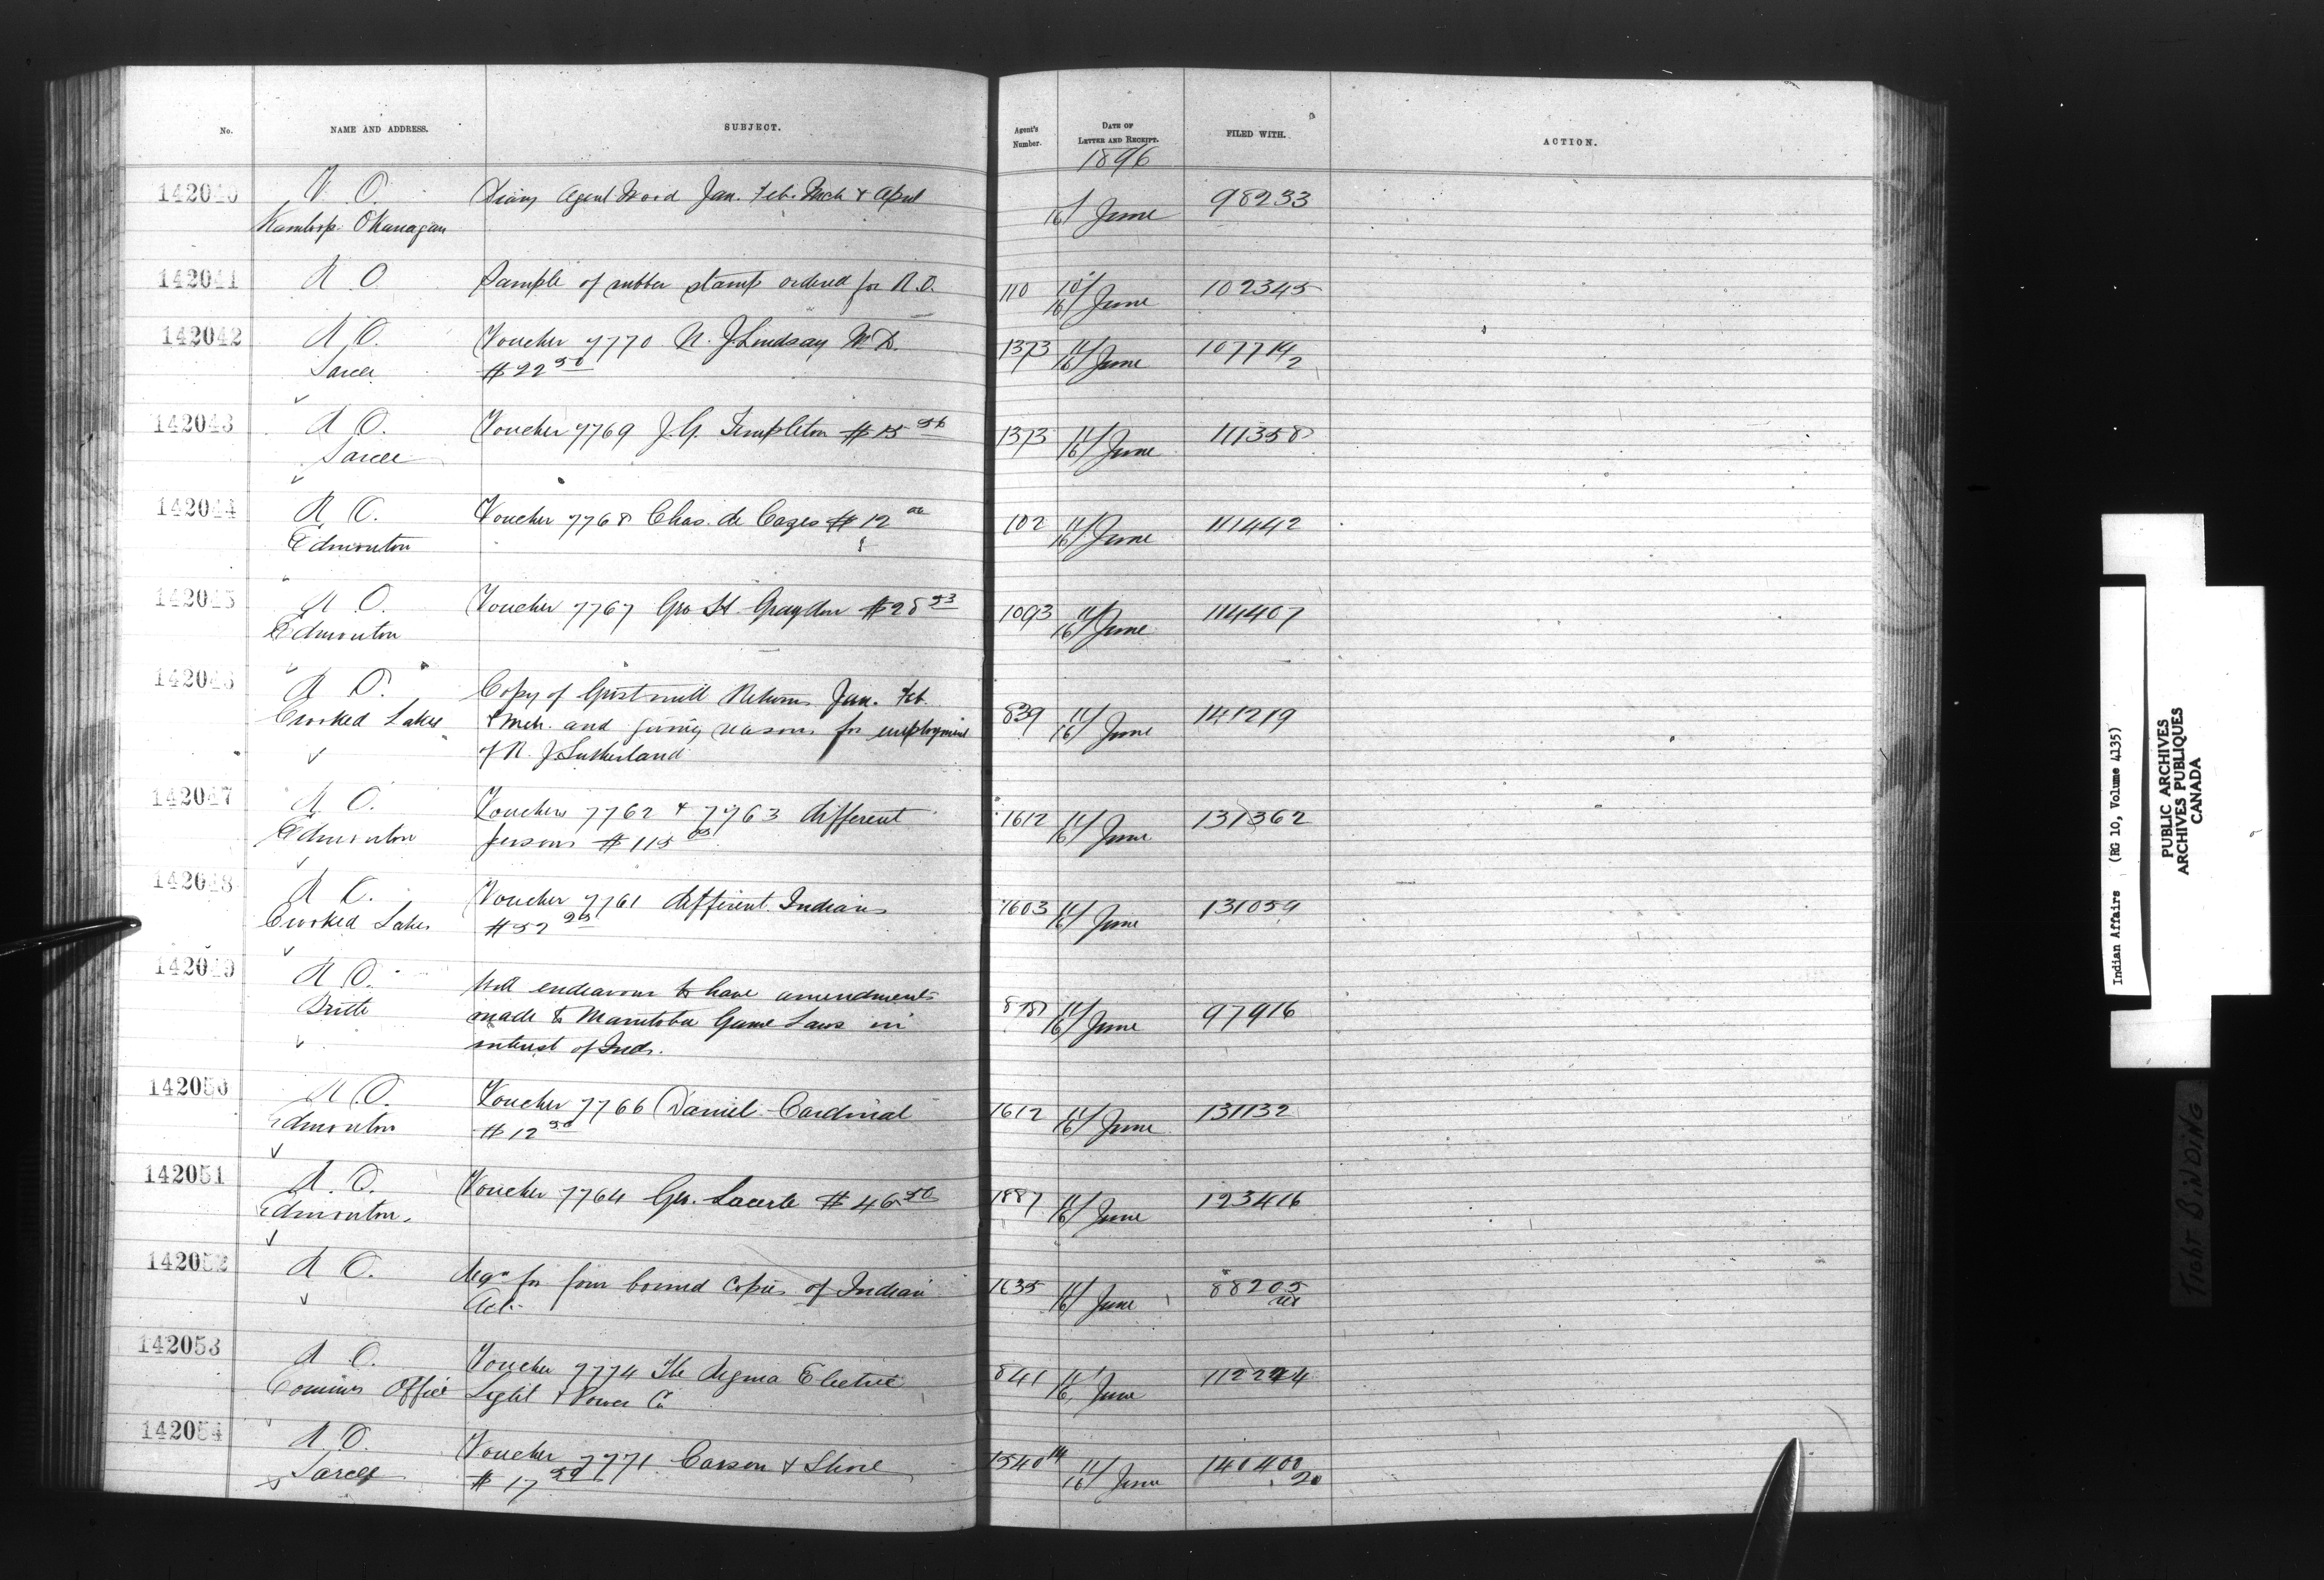 No. NAME AND ADDRESS. SUBJECT. Agent's Number. DATE OF LETTER AND RECEIPT. FILED WITH. ACTION.
1896
142040 V. O. Diary Agent Wood Jan. Feb. Mch & April 1/16 June 98233
Kamloops Okanagan
142041 R O Sample of rubber stamp ordered for R.O. 110 10/16 June 102345
142042 R O. Voucher 7770 N. J Lindsay M D. 1373 11/16 June 107714/2
Sarcee $22 50
142043 R O. Voucher 7769 J. G. Templeton $15 1373 11/16 June 111358
Sarcee
142044 R O. Voucher 7768 Chas. de Cazes $12 00 102 11/16 June 111442
Edmonton
142045 R O. Voucher 7767 Geo H Graydon $28 53 1093 11/16 June 114407
Edmonton
142046 R O. Copy of Gristmill Returns Jan. Feb.
Crooked Lakes & Mch. and giving reasons for employment 839 11/16 June 141219
of R. J Sutherland
142047 R O. Vouchers 7762 & 7763 different 1612 11/16 June 131362
Edmonton persons $115
142048 R O. Voucher 7761 different Indians 1603 11/16 June 131059
Crooked Lakes $52
142049 R O. Will endeavour to have amendments
Birtle made to Manitoba Game Laws in 11/16 June 97916
interest of Inds.
142050 R O. Voucher 7766 Daniel Cardinal 1612 11/16 June 131132
Edmonton $12 50
142051 R. O. Voucher 7764 Geo. Lacerte $46 50 1887 11/16 June 123416
Edmonton.
142052 R O. Reqn for four bound copies of Indian 1635 11/16 June 88205
Act.
142053 R O. Voucher 7774 The Regina Electric 841 11/16 June
Commrs Office Light & Power Co
142054 R O. Voucher 7771 Carson & Shore 1540 11/16 June 140400/20
Sarcee $17
Indian Affairs (RG 10, Volume 4135)
PUBLIC ARCHIVES
ARCHIVES PUBLIQUES
CANADA
TIGHT BINDING